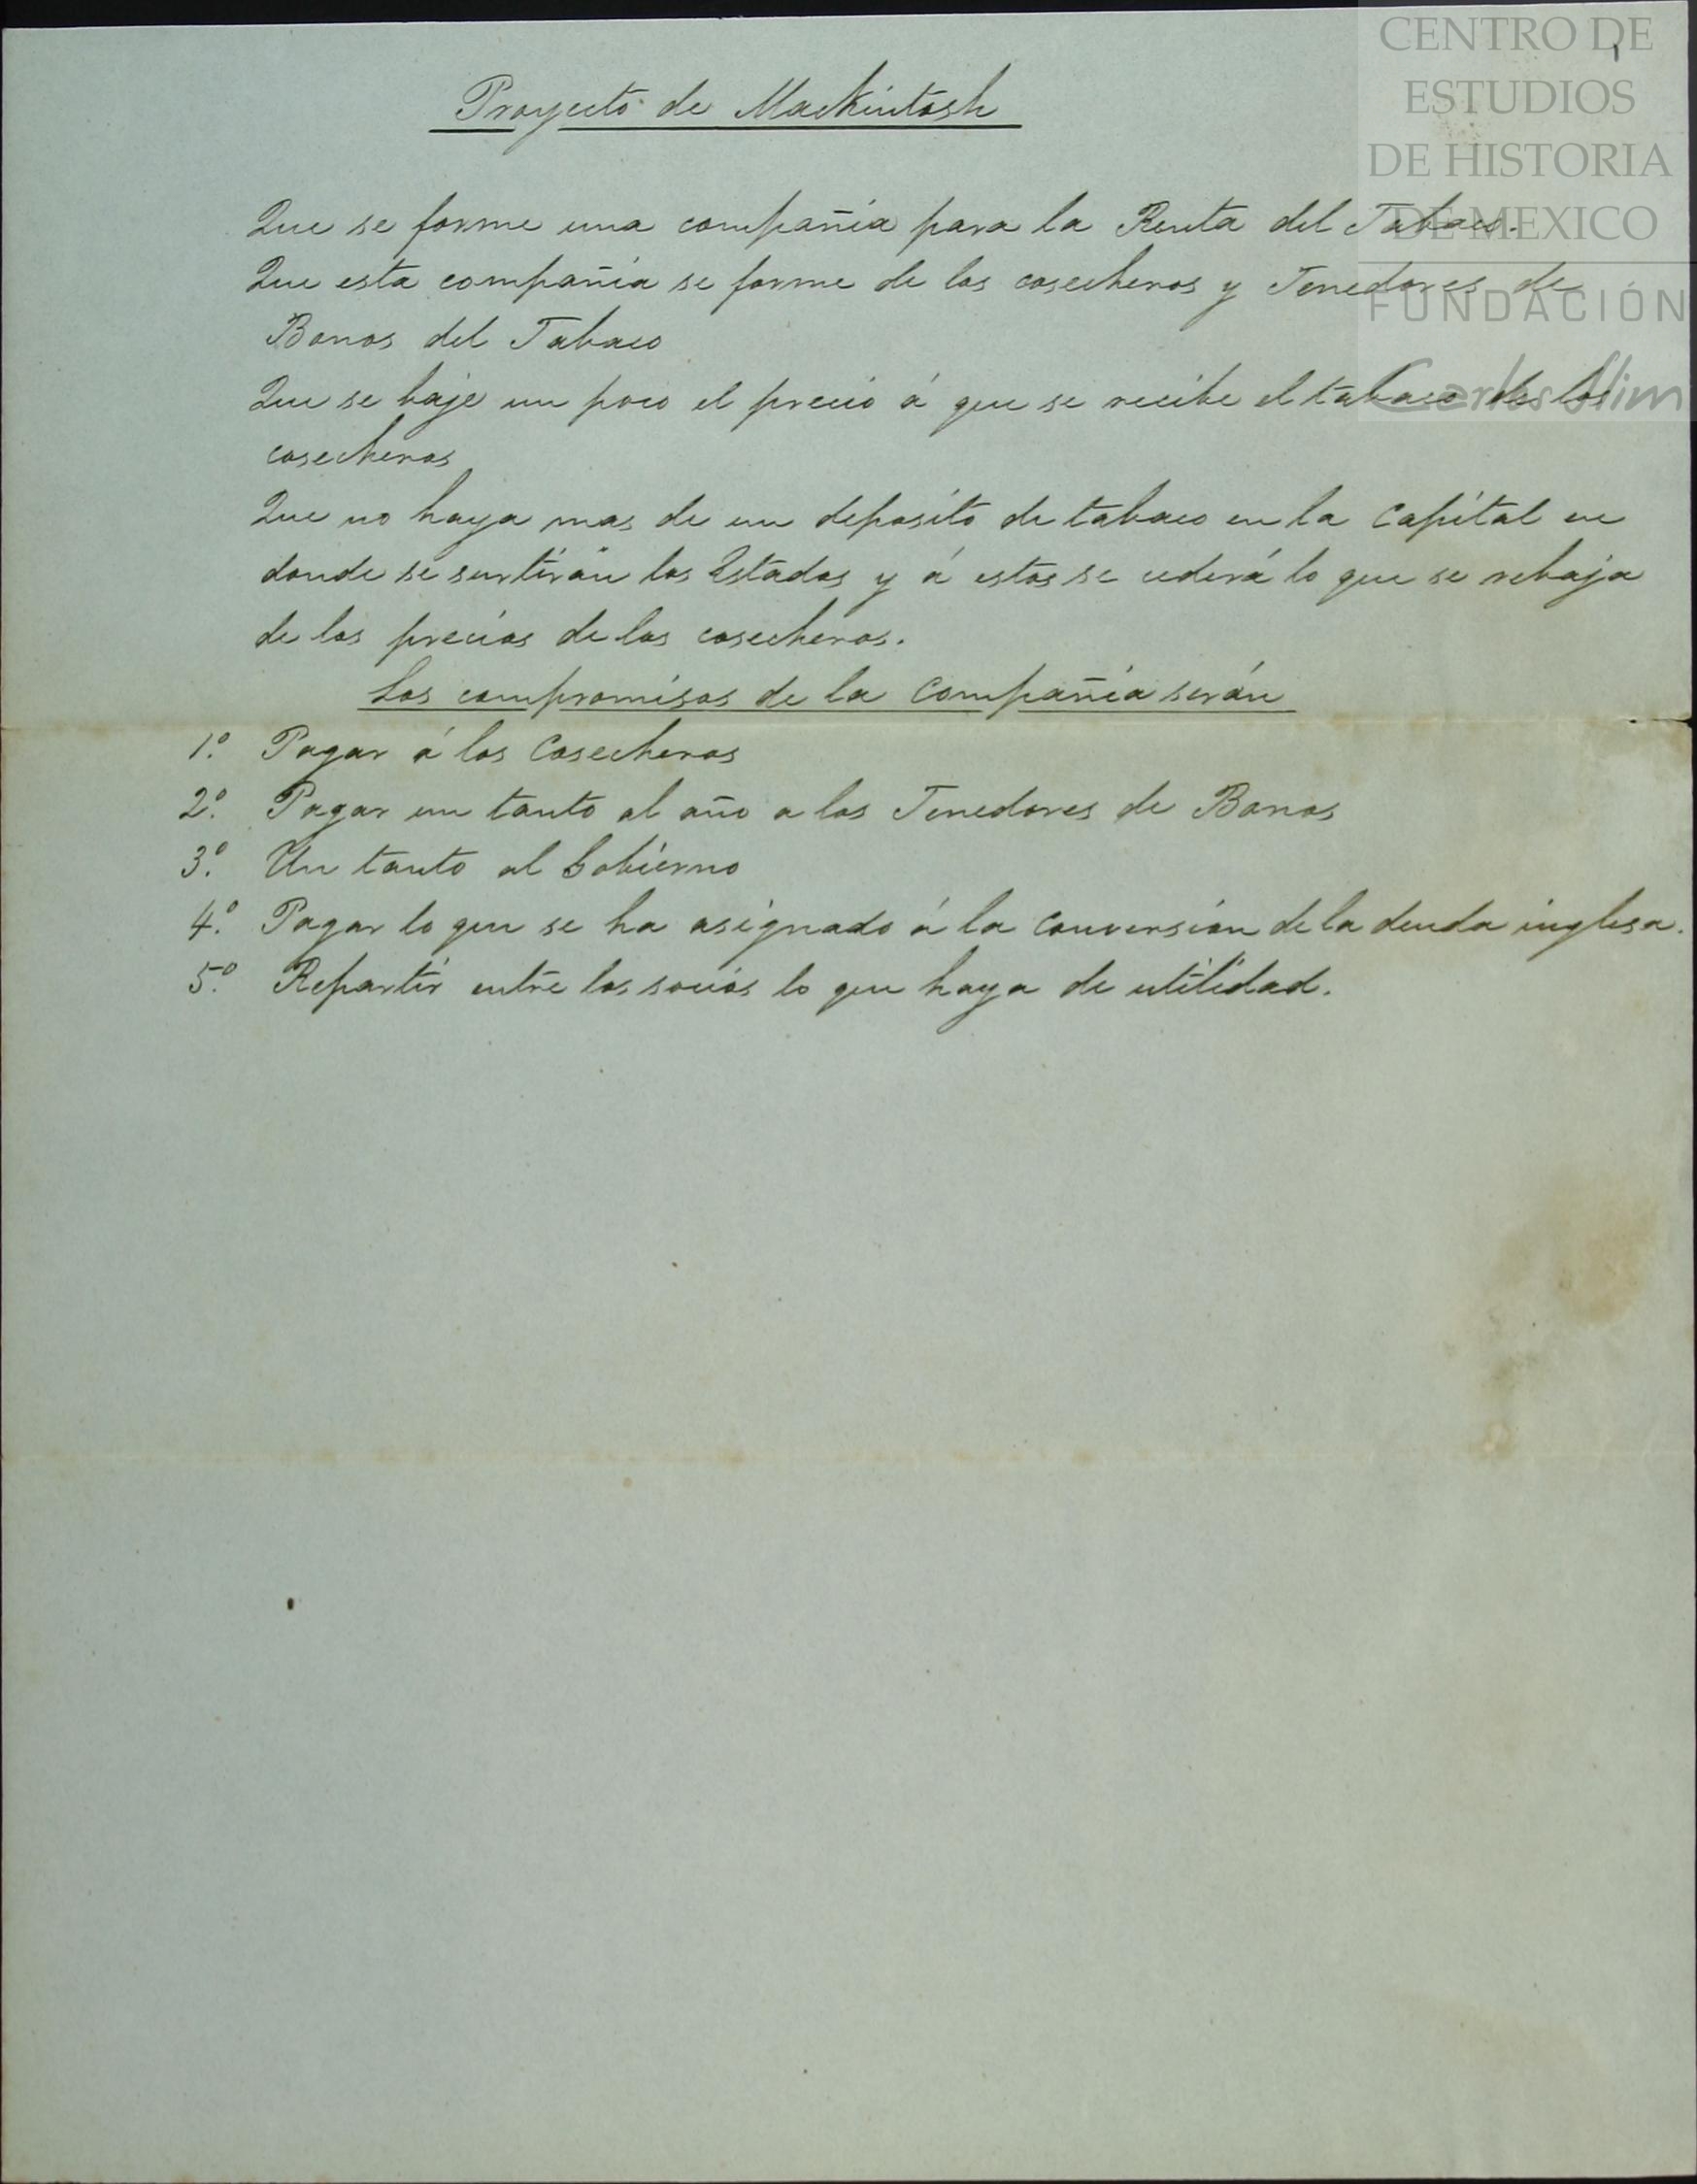 CENTRO DE
ESTUDIOS
DE HISTORIA
DE MEXICO
FUNDACIÓN
Carlos Slim
1
Proyecto de Mackintosh
Que se forme una compañia para la Renta del Tabaco.
Que esta compañia se forme de los cosecheros y Tenedores de
Bonos del Tabaco
Que se baje un poco el precio á que se recibe el tabaco de los
cosecheros
Que no haya mas de un deposito de tabaco en la Capital en
donde se surtirán los Estados y á estos se cederá lo que se rebaja
de los precios de los cosecheros.
Los compromisos de la Compañia serán
1º. Pagar á los Cosecheros
2º. Pagar un tanto al año a los Tenedores de Bonos
3º. Un tanto al Gobierno
4º. Pagar lo que se ha asignado á la Conversion de la deuda inglesa.
5º. Repartir entre los socios lo que haya de utilidad.